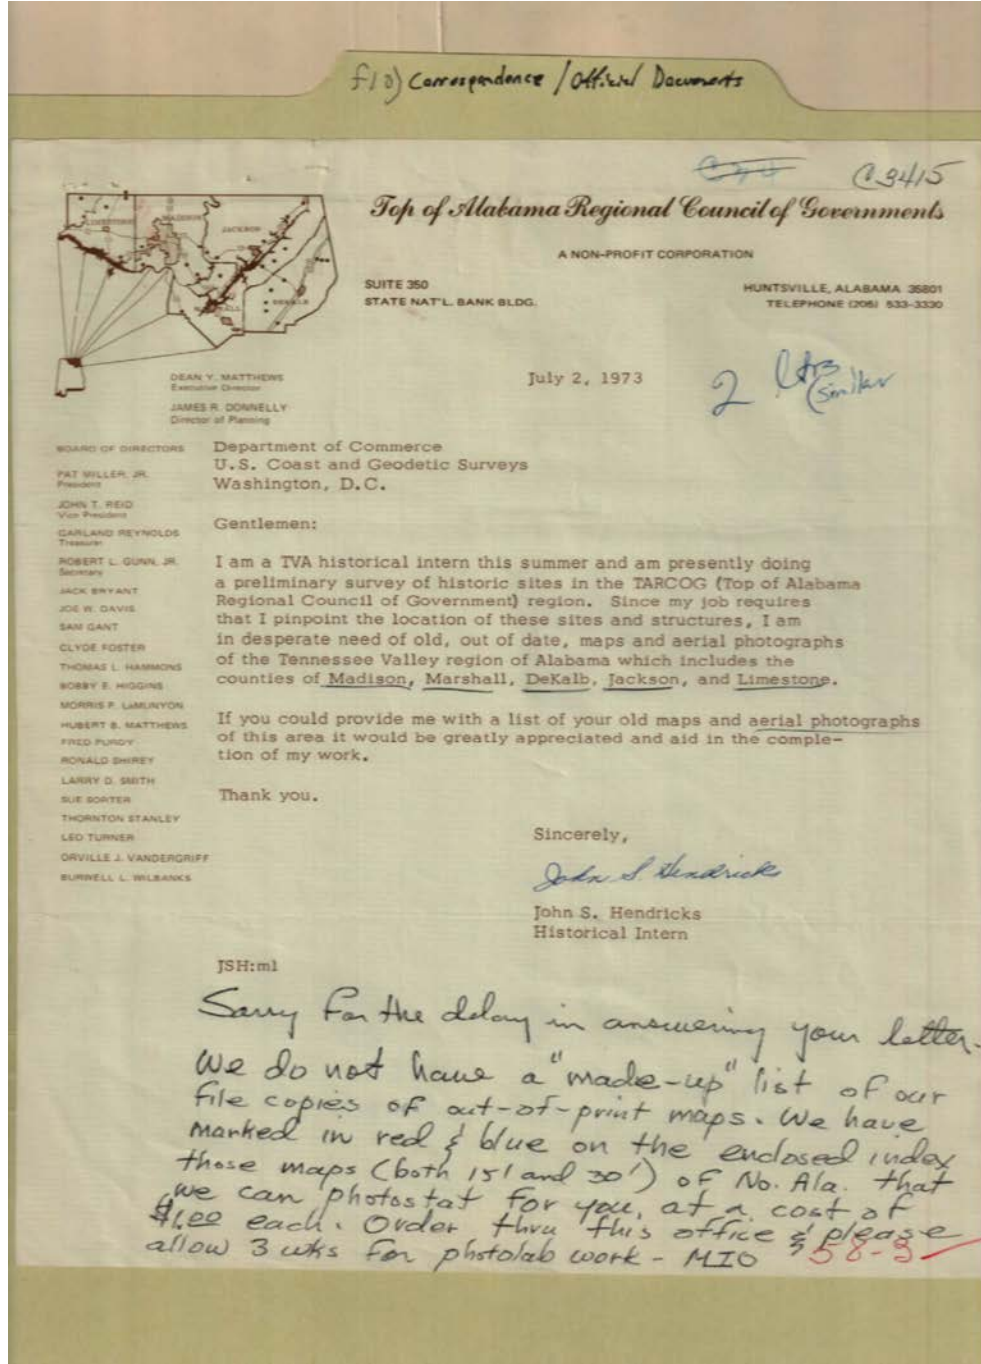 f10) Correspondence / Official Documents
C 3415
Top of Alabama Regional Council of Governments
A NON-PROFIT CORPORATION
SUITE 350
STATE NAT'L. BANK BLDG.
HUNTSVILLE, ALABAMA 35801
TELEPHONE (205) 533-3330
LIMESTONE
MADISON
JACKSON
DEKALB
DEAN Y. MATTHEWS
Executive Director
JAMES R. DONNELLY
Director of Planning
July 2, 1973
2 ltrs
(similar
BOARD OF DIRECTORS
PAT MILLER, JR.
President
JOHN T. REID
Vice President
GARLAND REYNOLDS
Treasurer
ROBERT L. GUNN, JR.
Secretary
JACK BRYANT
JOE W. DAVIS
SAM GANT
CLYDE FOSTER
THOMAS L. HAMMONS
BOBBY E. HIGGINS
MORRIS P. LaMUNYON
HUBERT B. MATTHEWS
FRED PURDY
RONALD SHIREY
LARRY D. SMITH
SUE SORTER
THORNTON STANLEY
LEO TURNER
ORVILLE J. VANDERGRIFF
BURWELL L. WILBANKS
Department of Commerce
U.S. Coast and Geodetic Surveys
Washington, D.C.
Gentlemen:
I am a TVA historical intern this summer and am presently doing
a preliminary survey of historic sites in the TARCOG (Top of Alabama
Regional Council of Government) region. Since my job requires
that I pinpoint the location of these sites and structures, I am
in desperate need of old, out of date, maps and aerial photographs
of the Tennessee Valley region of Alabama which includes the
counties of Madison, Marshall, DeKalb, Jackson, and Limestone.
If you could provide me with a list of your old maps and aerial photographs
of this area it would be greatly appreciated and aid in the comple-
tion of my work.
Thank you.
Sincerely,
John S. Hendricks
John S. Hendricks
Historical Intern
JSH:ml
Sorry for the delay in answering your letter.
We do not have a "made-up" list of our
file copies of out-of-print maps. We have
marked in red & blue on the enclosed index
those maps (both 15' and 30') of No. Ala. that
we can photostat for you, at a cost of
$1.00 each. Order thru this office & please
allow 3 wks for photolab work - MIO 58-3